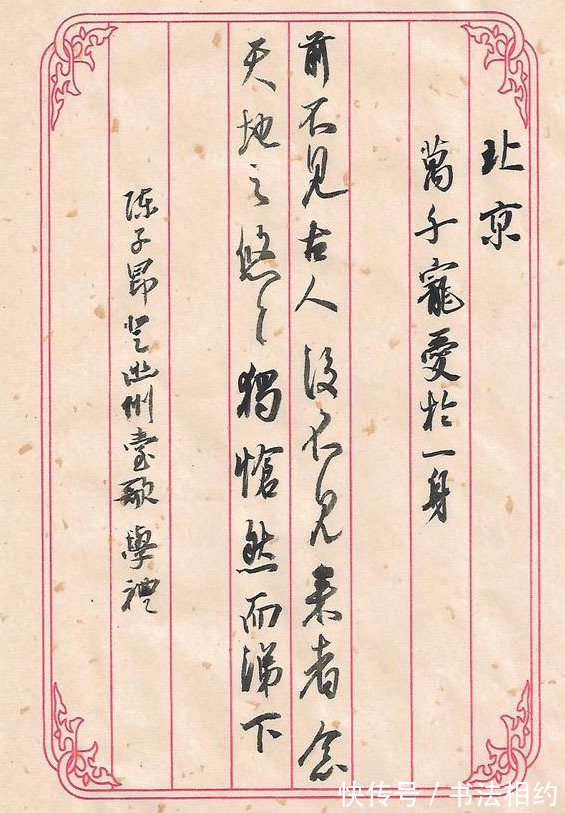 北京
萬千寵愛於一身
前不見古人後不見来者念
天地之悠々獨愴然而涕下
陈子昂登幽州臺歌 學禮
快传号 / 书法相约